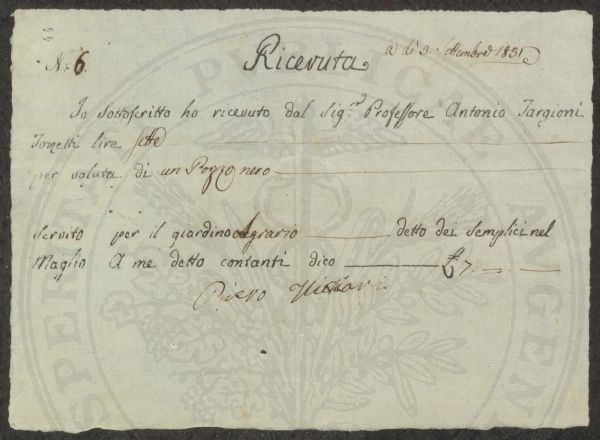 44
N.º 6. Ricevuta a dì 3 Settembre 1831
Io Sottoscritto ho ricevuto dal Sig.re Professore Antonio Targioni
Tozzetti lire sette
per valuta di un Pozzo nero
Servito per il giardino Agrario detto dei Semplici nel
Maglio A me detto contanti dico £ 7
Piero